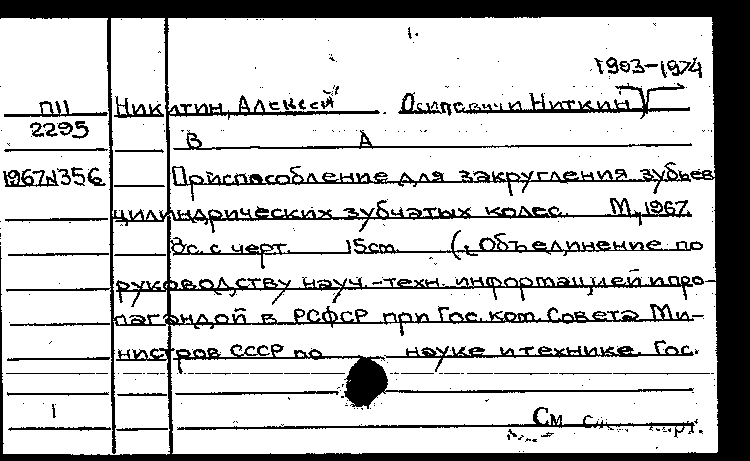 1903-1974
П11 Никитин, Алексей Осипович и Ниткин
2295
В А
1967 N 356 Приспособление для закругления зубьев
цилиндрических зубчатых колес. М., 1967.
8с. с черт. 15см (Объединение по
руководству науч.-техн. информацией и про-
пагандой в РСФСР при Гос. ком. Совета Ми-
нистров СССР по науке и технике. Гос.
1
См карт.